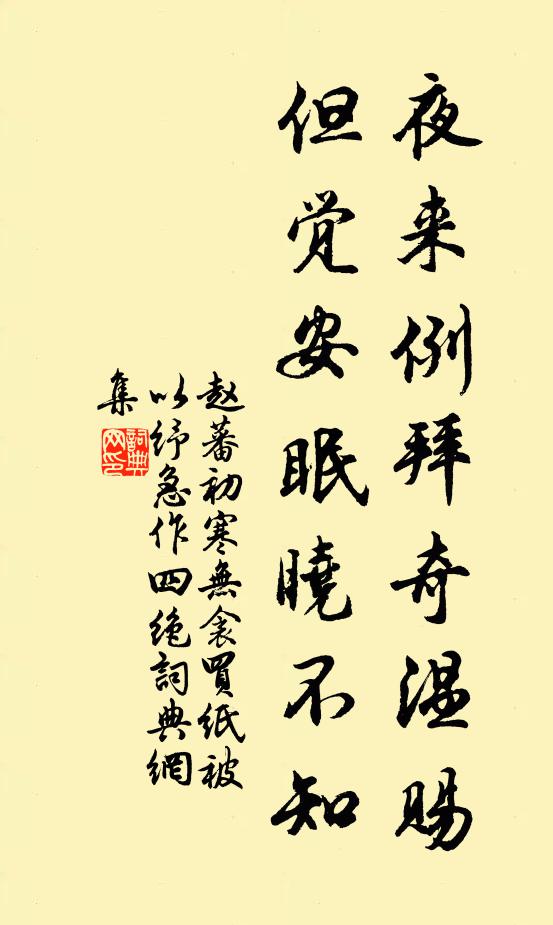 夜来例拜奇温赐
但觉安眠曉不知
赵蕃初寒無衾買纸被
以纾急作四绝詞典網
集
詞典网印